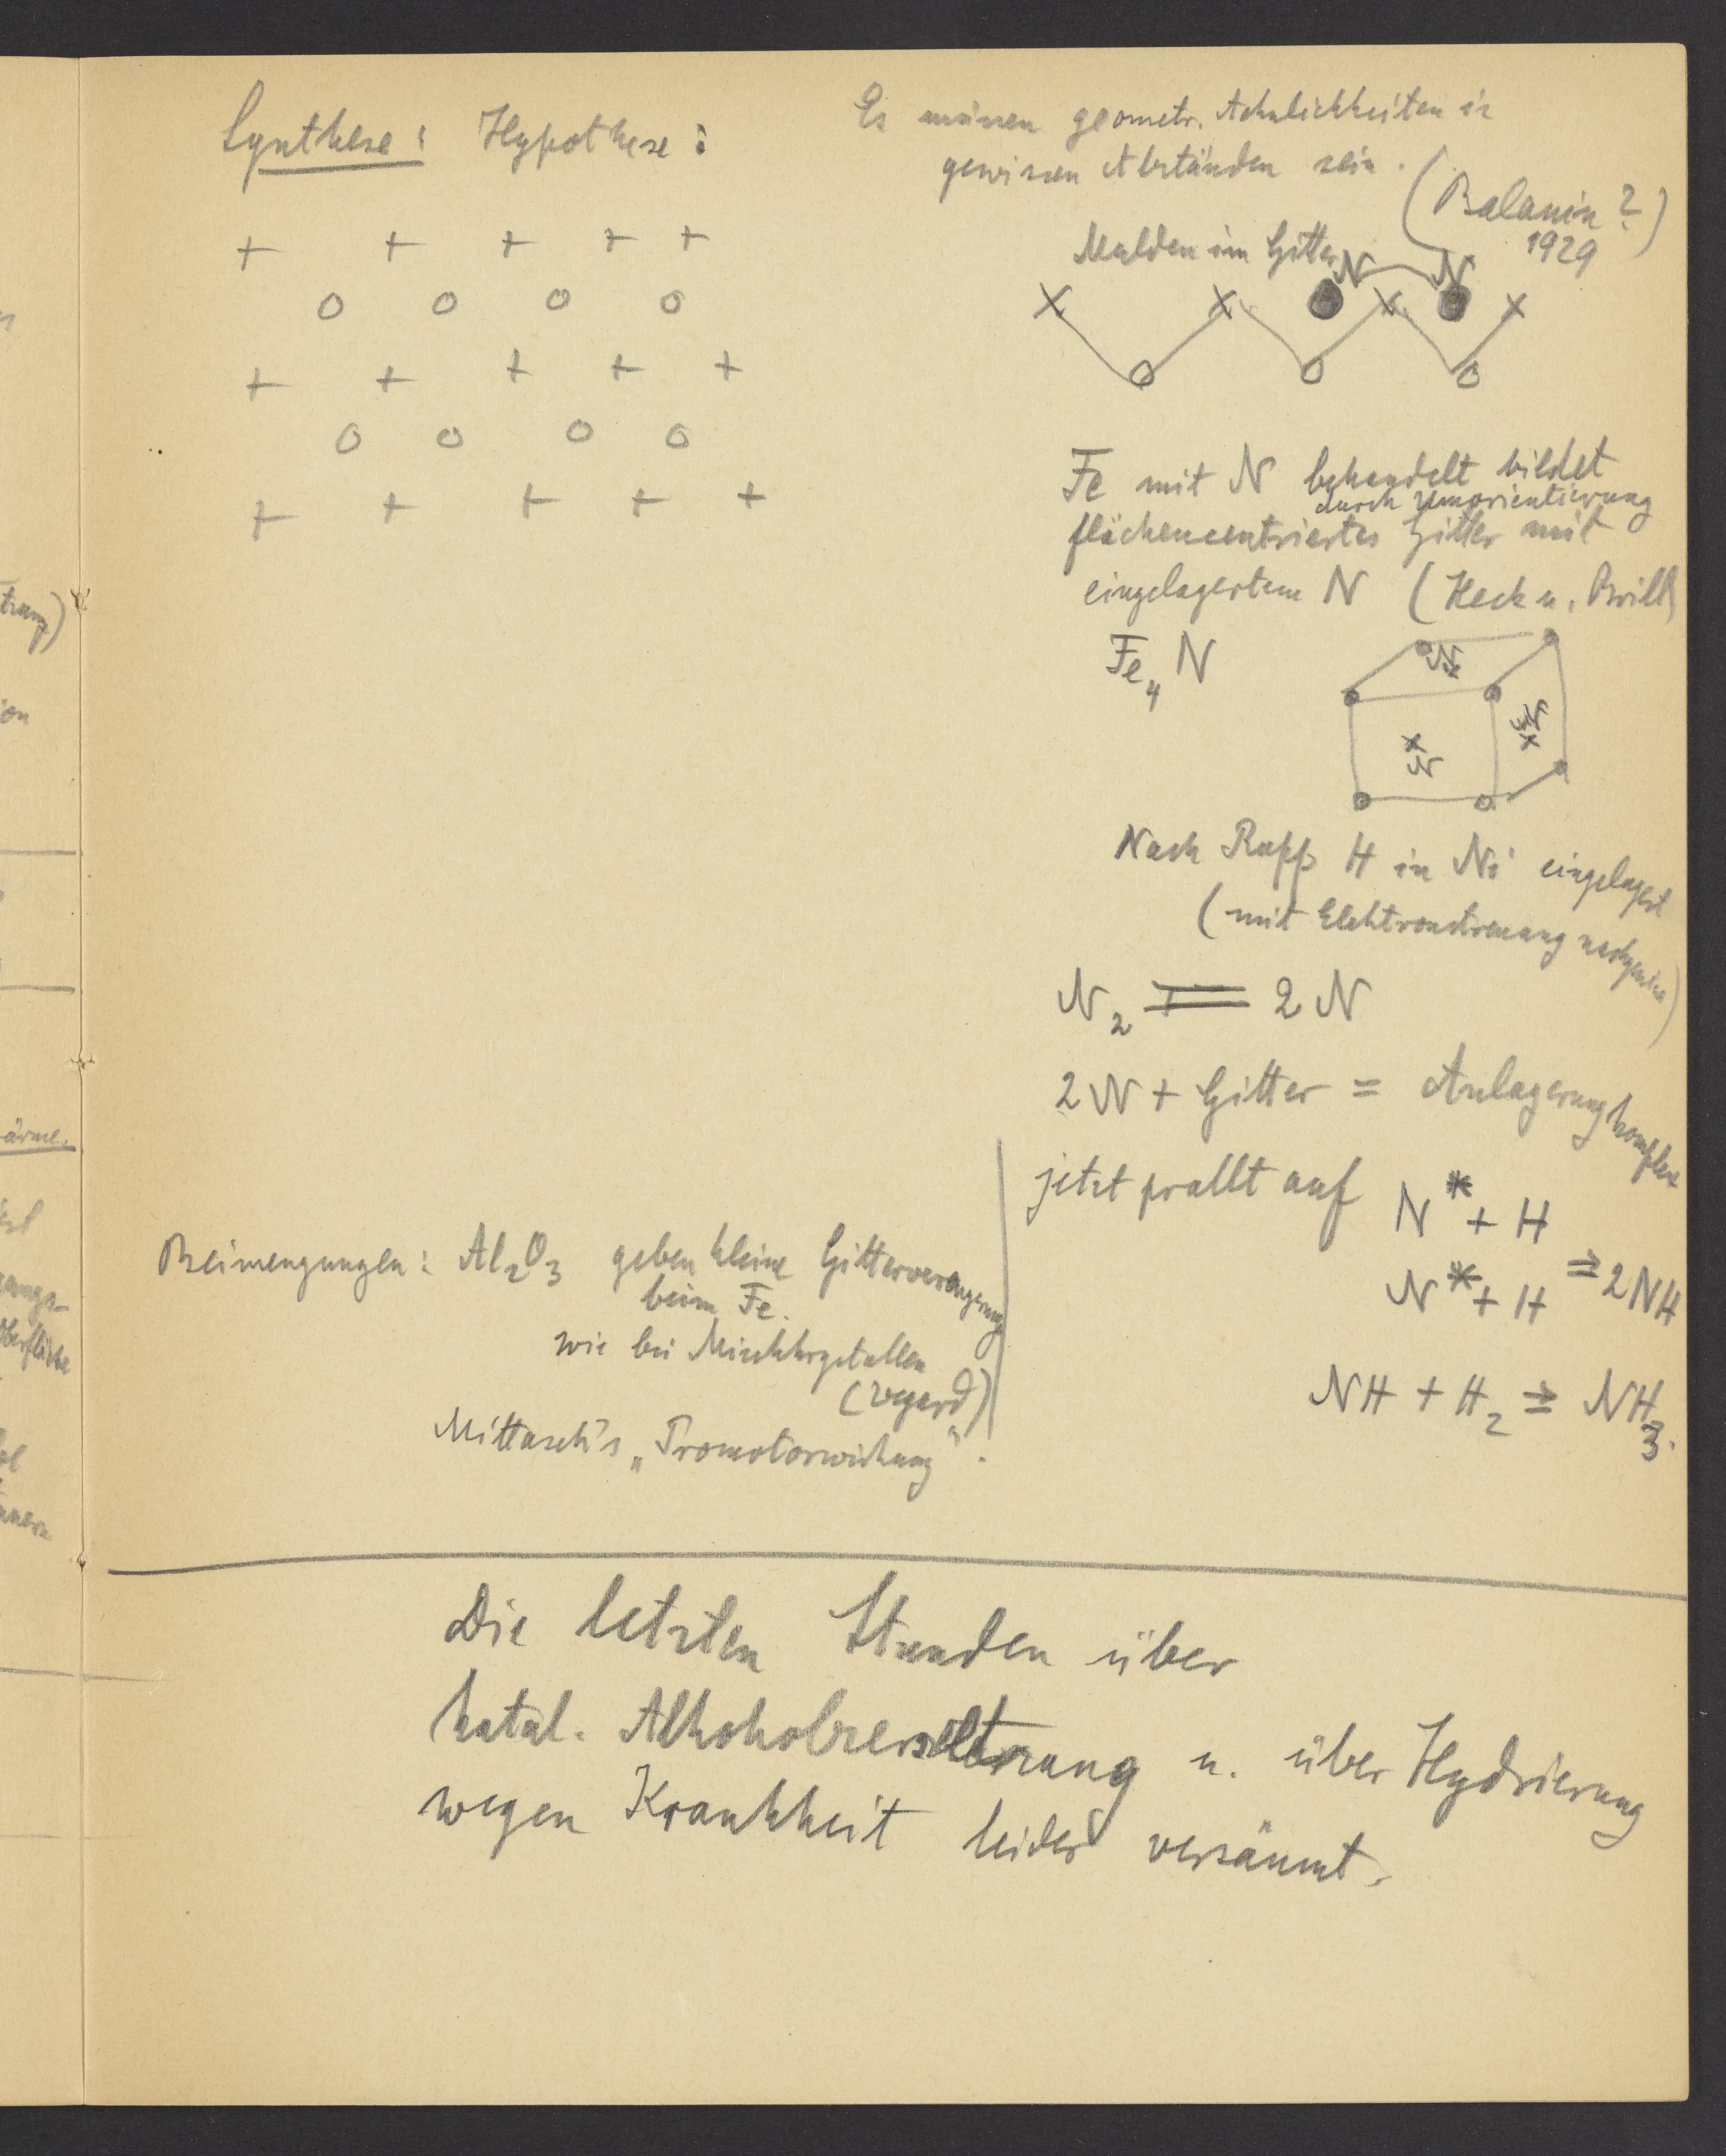 Synthese: Hypothese:
Es müssen geometr. Ähnlichkeiten in
gewissen Abständen sein.
(Balanin?)
1929
Mulden im Gitter
N N
+ + + + +
o o o o
+ + + + +
o o o o
+ + + + +
x x x x
o o o
Fe mit N behandelt bildet
durch Umorientierung
flächencentriertes Gitter mit
eingelagertem N (Heck u. Brill)
Fe4 N
N x
x N
N x
Nach Rupp H in Ni eingelagert
(mit Elektronstreuung
N2 = 2 N
2 N + Gitter = Anlagerungkomplex
jetzt prallt auf N* + H
N* + H ⇒ 2NH
NH + H2 ⇒ NH3.
Beimengungen: Al2O3 geben kleine Gitterverengerung
beim Fe.
wie bei Mischkrystallen
(Vegard)
Mittasch's „Promotorwirkung".
Die letzten Stunden über
katal. Alkoholzersetzung u. über Hydrierung
wegen Krankheit leider versäumt.
trung)
ion
ärme.
gangs-
Oberfläche